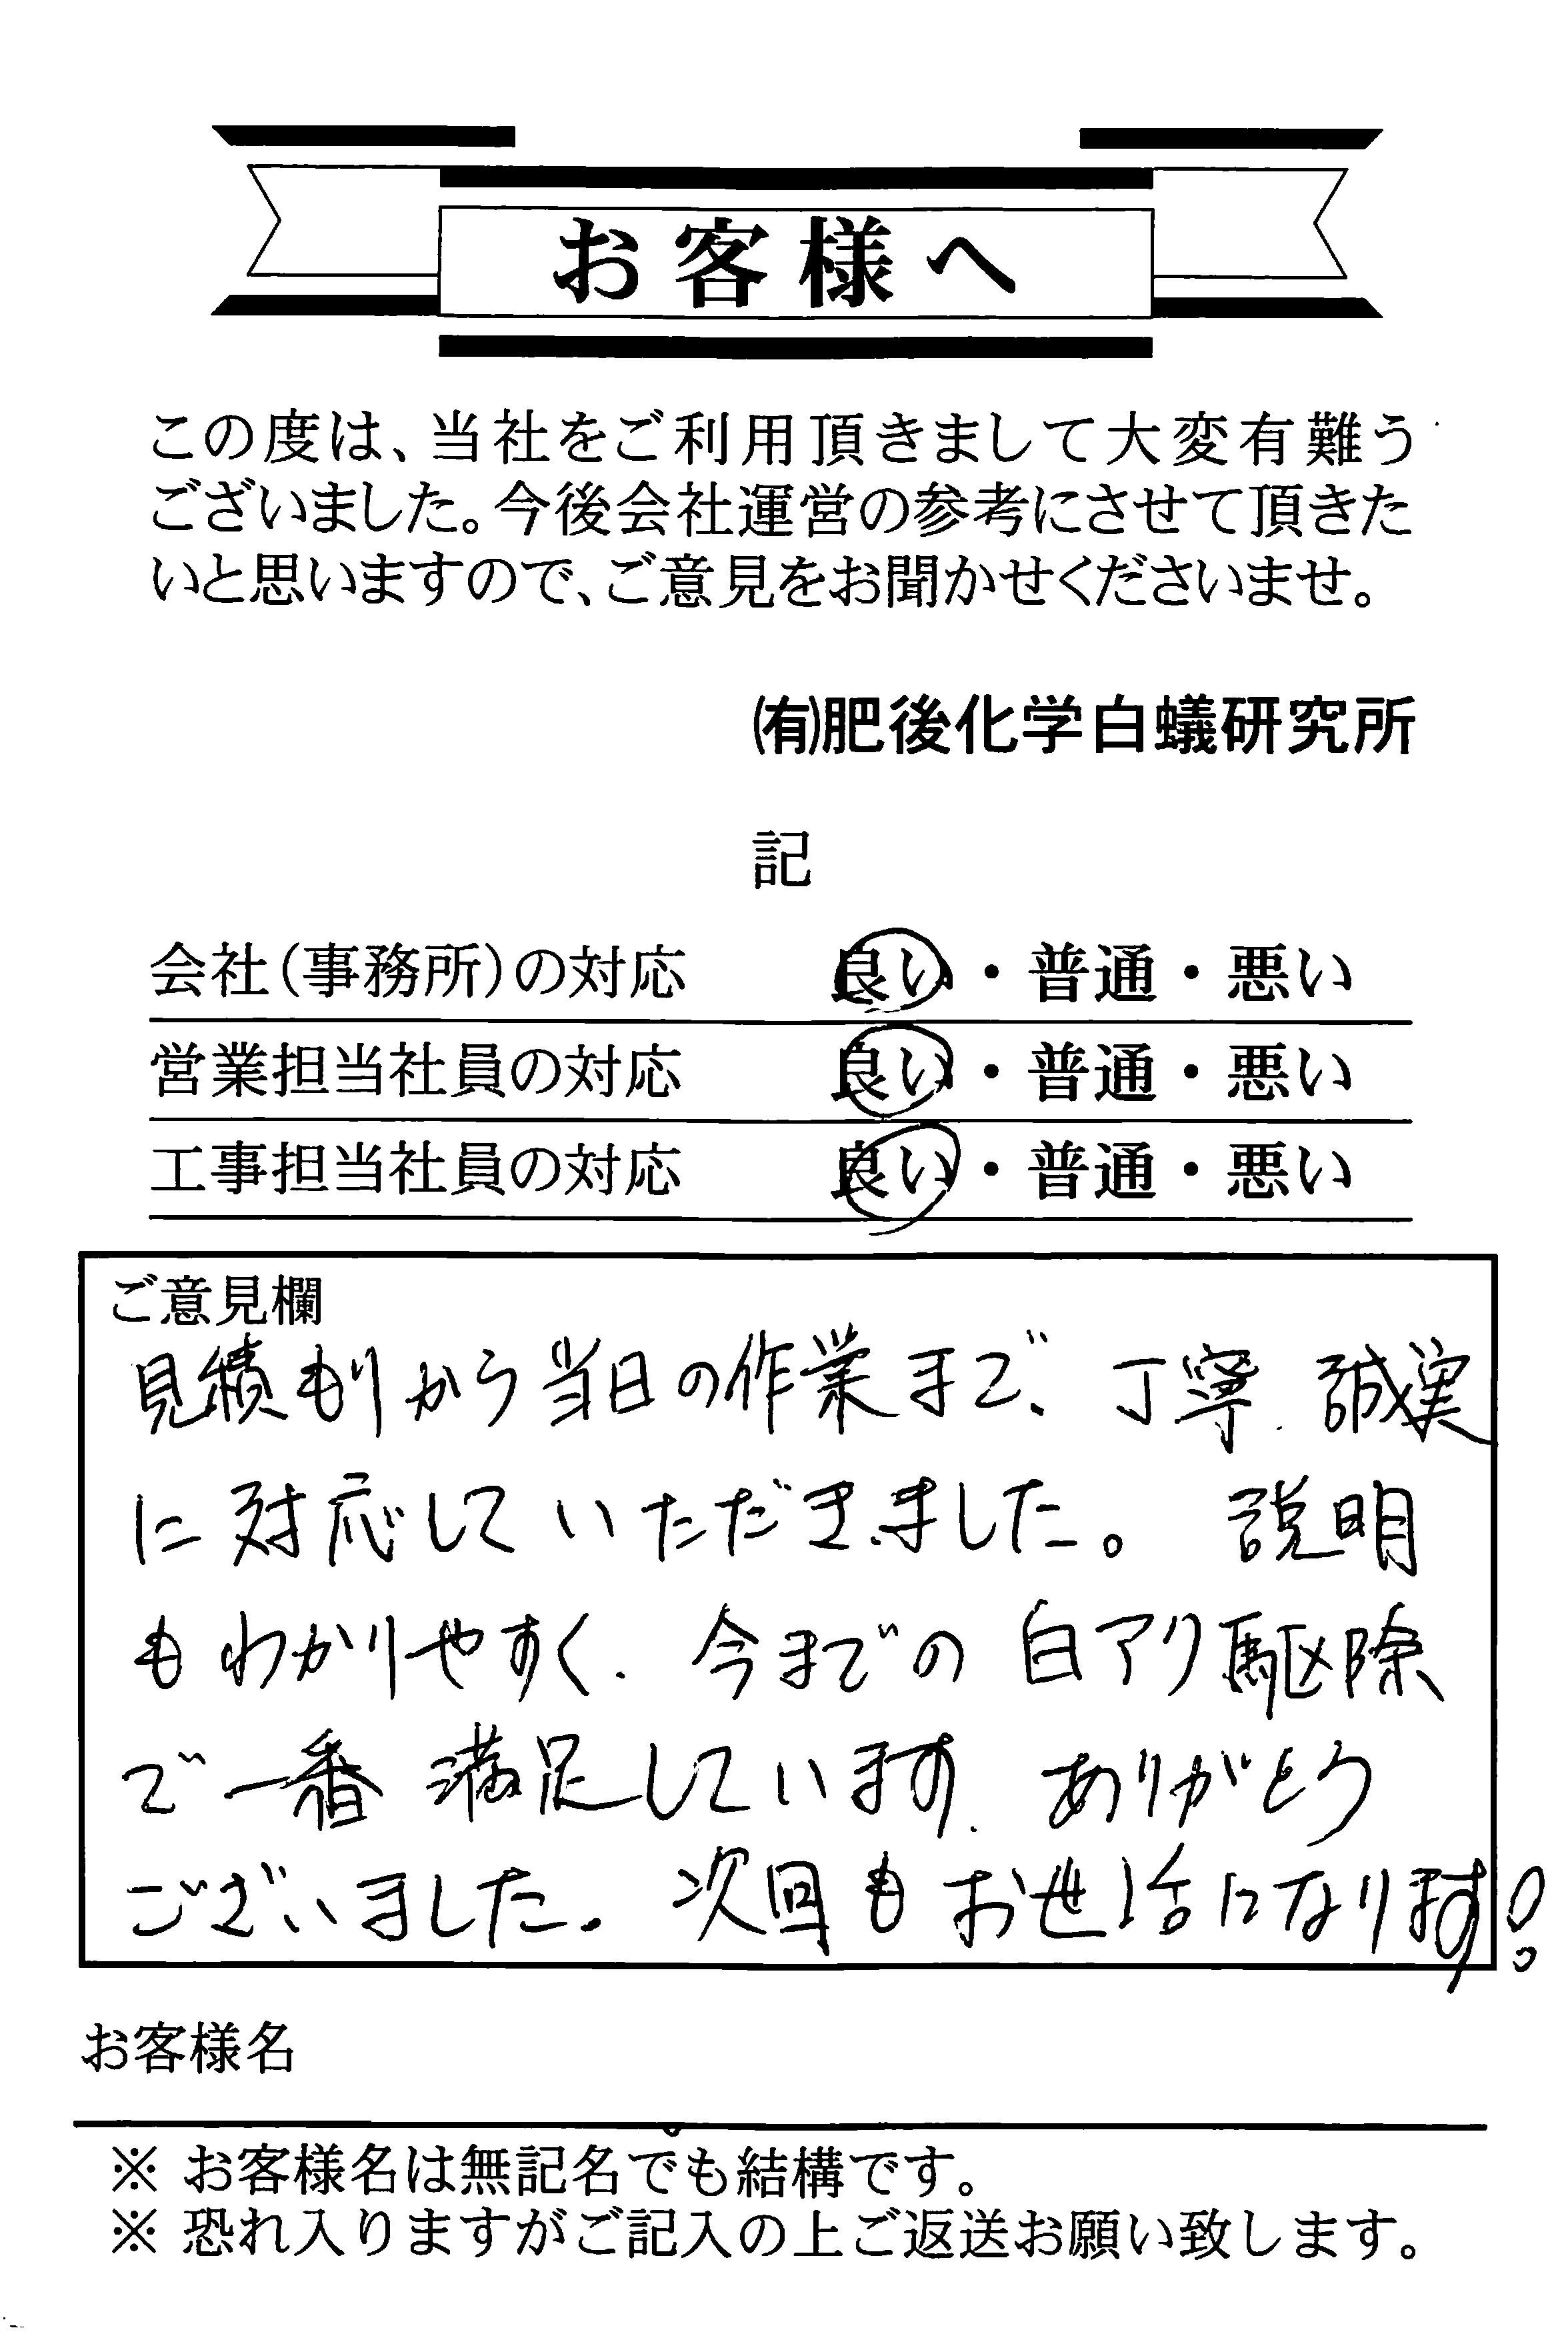 お客様へ
この度は、当社をご利用頂きまして大変有難う
ございました。今後会社運営の参考にさせて頂きた
いと思いますので、ご意見をお聞かせくださいませ。
㈲肥後化学白蟻研究所
記
会社(事務所)の対応 良い・普通・悪い
営業担当社員の対応 良い・普通・悪い
工事担当社員の対応 良い・普通・悪い
ご意見欄
見積もりから当日の作業まで、丁寧、誠実
に対応していただきました。 説明
もわかりやすく、今までの白アリ駆除
で一番満足しています。ありがとう
ございました。次回もお世話になります!
お客様名
※ お客様名は無記名でも結構です。
※ 恐れ入りますがご記入の上ご返送お願い致します。